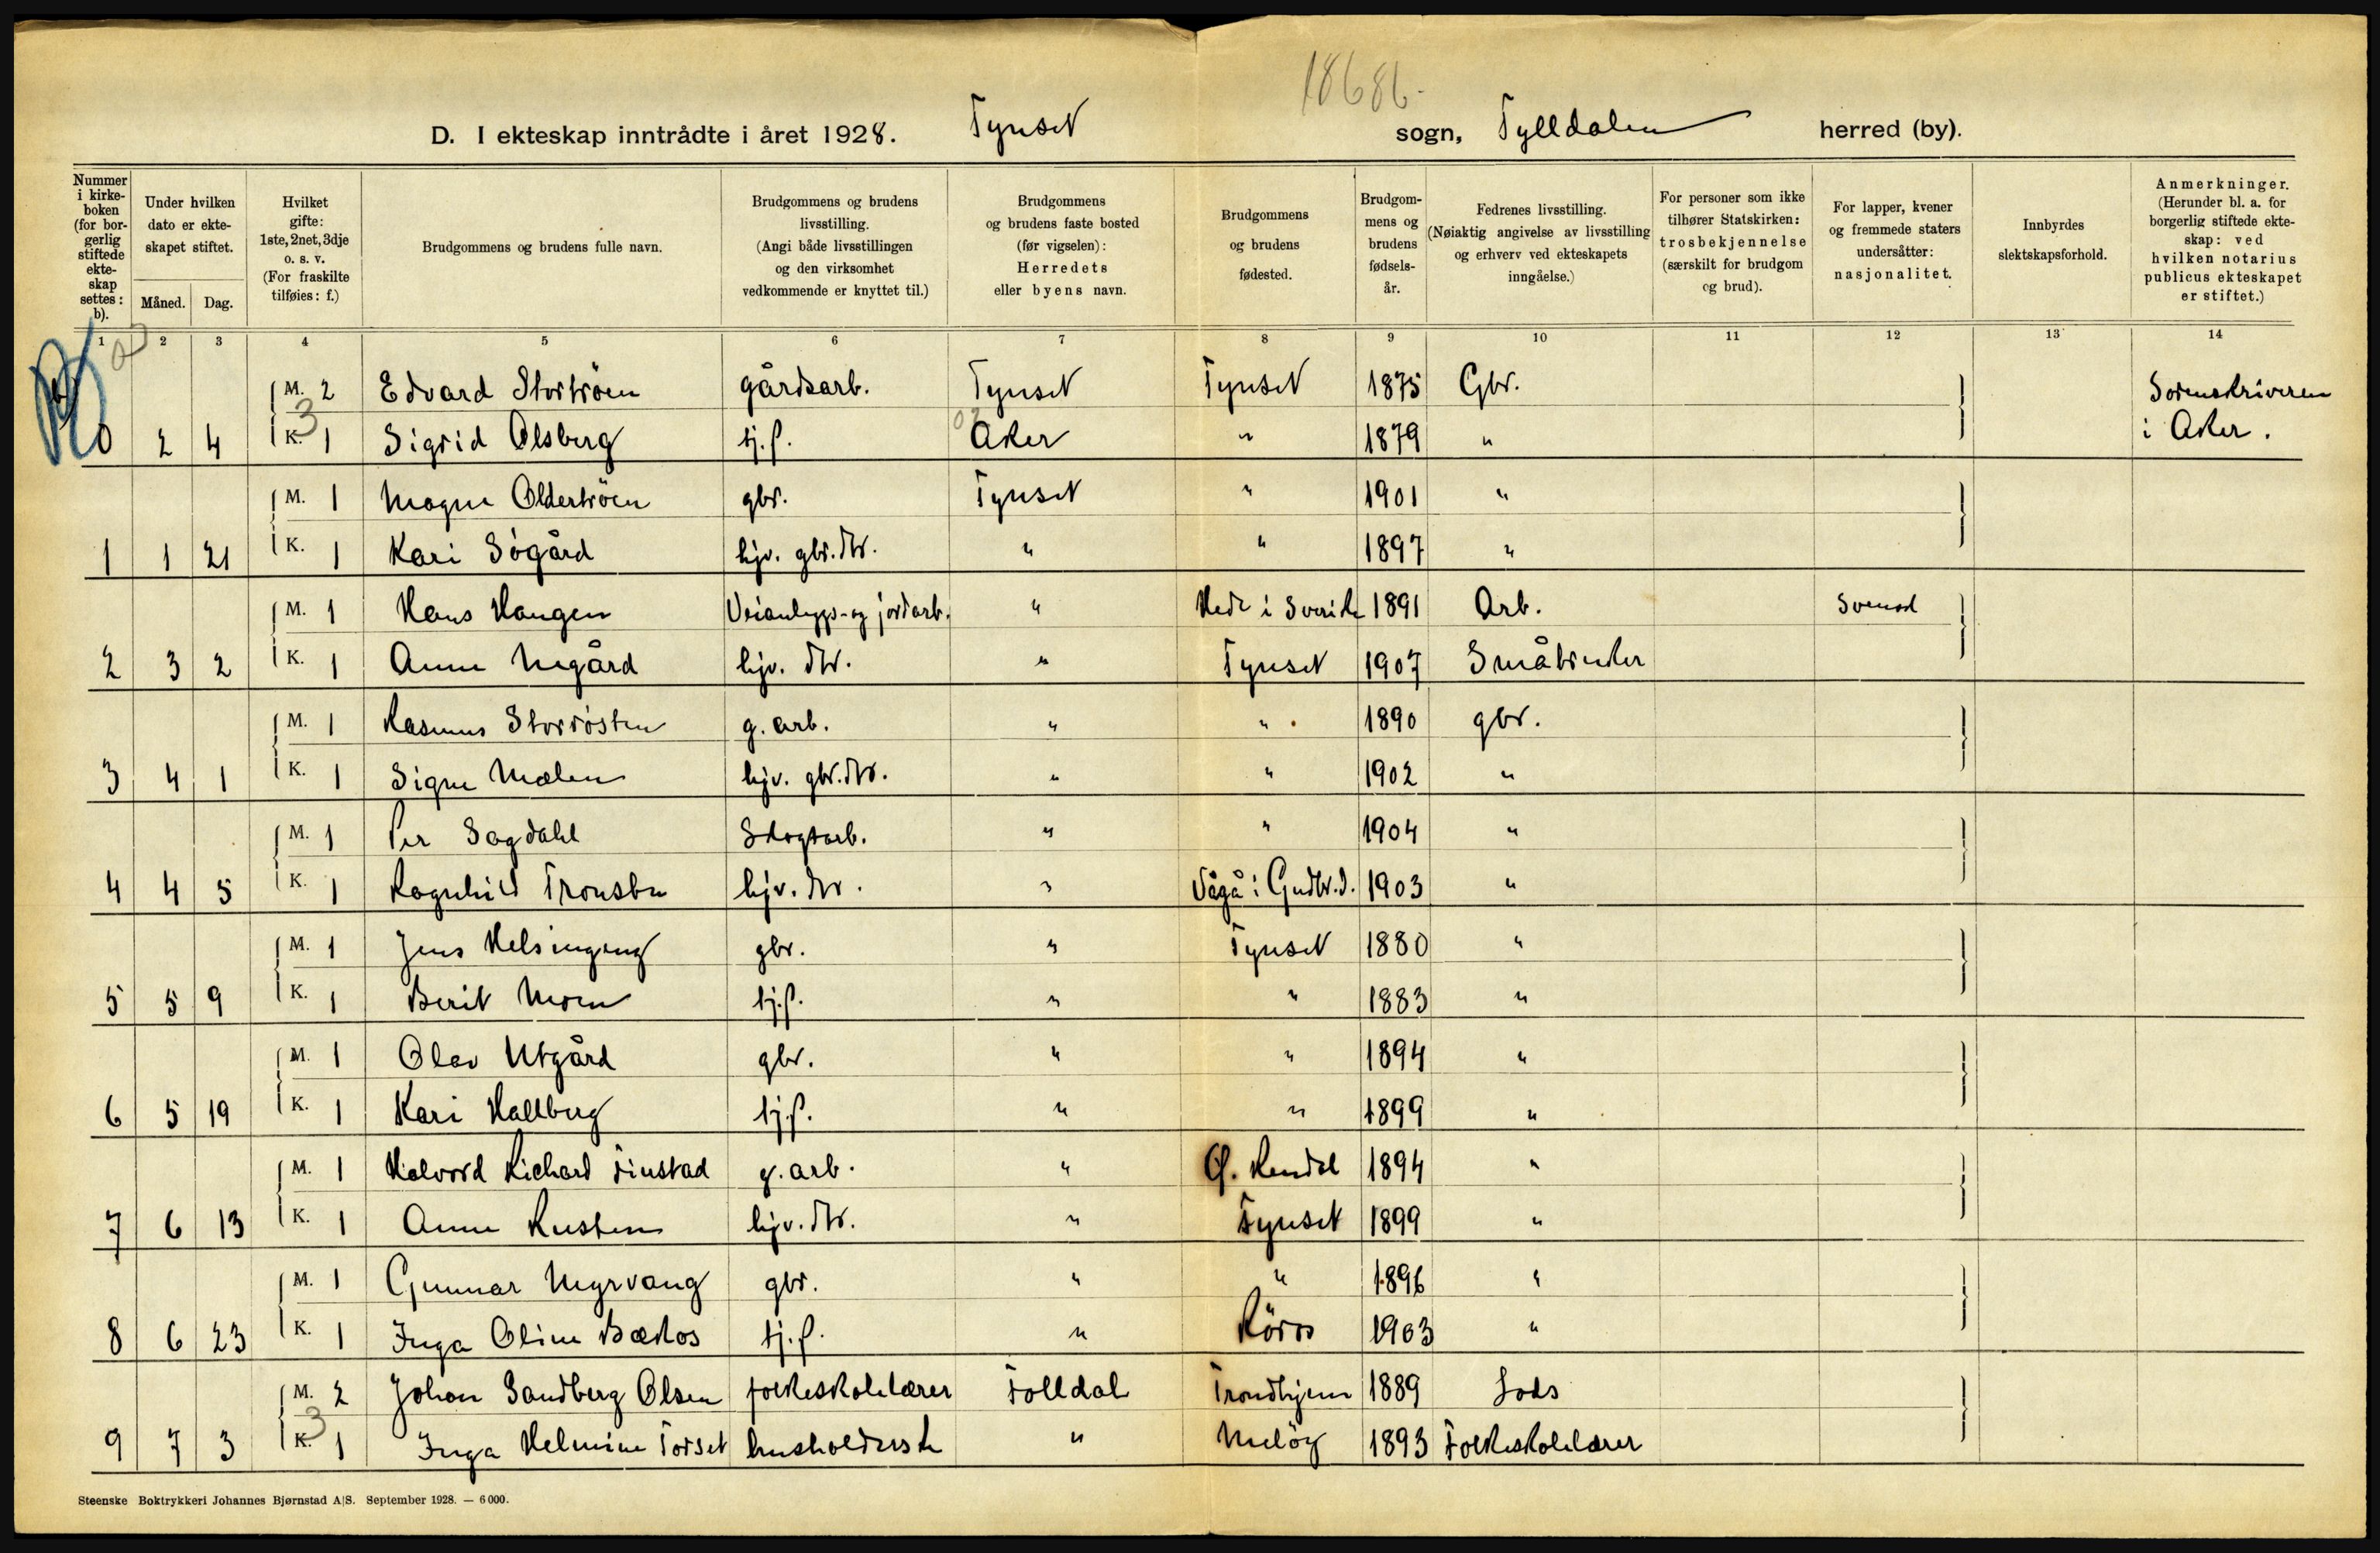 18686.
D. I ekteskap inntrådte i året 1928. Tynset sogn, Tylldalen herred (by).
Nummer i kirkeboken (for borgerlig stiftede ekteskap settes: b).
Under hvilken dato er ekteskapet stiftet.
Måned. Dag.
Hvilket gifte: 1ste, 2net, 3dje o. s. v. (For fraskilte tilføies: f.)
Brudgommens og brudens fulle navn.
Brudgommens og brudens livsstilling. (Angi både livsstillingen og den virksomhet vedkommende er knyttet til.)
Brudgommens og brudens faste bosted (før vigselen): Herredets eller byens navn.
Brudgommens og brudens fødested.
Brudgommens og brudens fødselsår.
Fedrenes livsstilling. (Nøiaktig angivelse av livsstilling og erhverv ved ekteskapets inngåelse.)
For personer som ikke tilhører Statskirken: trosbekjennelse (særskilt for brudgom og brud).
For lapper, kvener og fremmede staters undersåtter: nasjonalitet.
Innbyrdes slektskapsforhold.
Anmerkninger. (Herunder bl. a. for borgerlig stiftede ekteskap: ved hvilken notarius publicus ekteskapet er stiftet.)
1 2 3 4 5 6 7 8 9 10 11 12 13 14
M. 2 Edvard Stortröen gårdsarb. Tynset Tynset 1875 Gbr. Sorenskriveren
0 2 4 K. 1 Sigrid Olsberg tj.p. Aker " 1879 " i Aker.
M. 1 Magne Oldertröen gbr. Tynset " 1901 "
1 1 21 K. 1 Kari Sögård hjv. gbr.dtr. " " 1897 "
M. 1 Hans Haugen Veianleggs- og jordarb. " Hede i Sverike 1891 Arb. Svensk
2 3 2 K. 1 Anne Negård hjv. dtr. " Tynset 1907 Småbruker
M. 1 Rasmus Storrösten g. arb. " " 1890 gbr.
3 4 1 K. 1 Signe Mælen hjv. gbr.dtr. " " 1902 "
M. 1 Per Sagdahl Skogsarb. " " 1904 "
4 4 5 K. 1 Ragnhild Tronsbu hjv. dtr. " Vågå i Gudbr.d. 1903 "
M. 1 Jens Helsingeng gbr. " Tynset 1880 "
5 5 9 K. 1 Berit Moen tj.p. " " 1883 "
M. 1 Olav Utgård gbr. " " 1894 "
6 5 19 K. 1 Kari Hallberg tj.p. " " 1899 "
M. 1 Halvord Richard Finstad g. arb. " Ø. Rendal 1894 "
7 6 13 K. 1 Anne Rusten hjv. dtr. " Tynset 1899 "
M. 1 Gunnar Myrvang gbr. " " 1896 "
8 6 23 K. 1 Inga Oline Bækos tj.p. " Röros 1903 "
M. 2 Johan Sandberg Olsen folkeskolelærer Folldal Trondhjem 1889 Lods
9 7 3 K. 1 Inga Helmine Torset husholderske " Melöy 1893 Folkeskolelærer
Steenske Boktrykkeri Johannes Bjørnstad A|S. September 1928. — 6000.